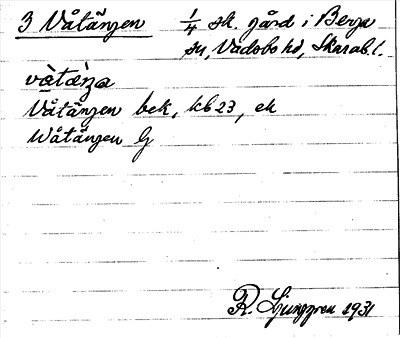 3 Våtängen 1/4 sk. gård i Berga
sn, Vadsbo hd, Skarab. l.
våtæŋa
Våtängen bek, kb 23, ek
Wåtängen G
R. Ljunggren 1931